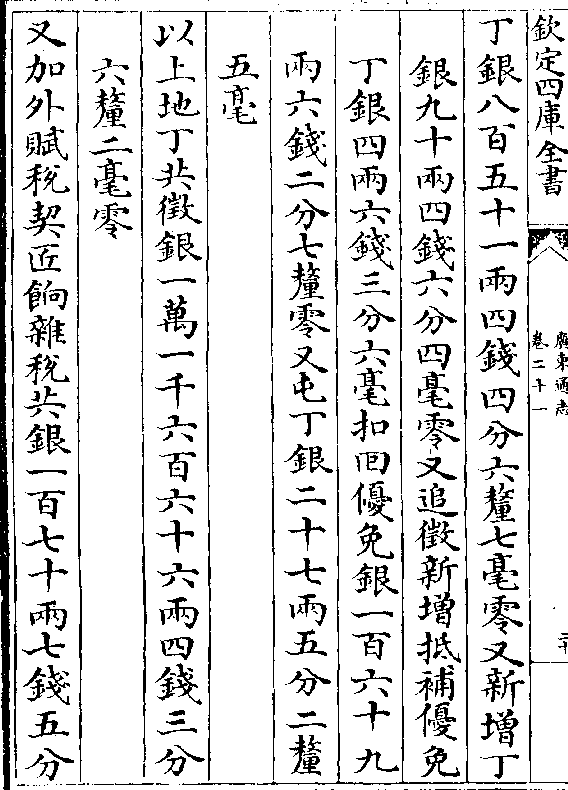 欽定四庫全書
廣東通志
卷二十一
丁銀八百五十一兩四錢四分六釐七毫零又新增丁
銀九十兩四錢六分四毫零又追徵新增抵補優免
丁銀四兩六錢三分六毫扣囘優免銀一百六十九
兩六錢二分七釐零又屯丁銀二十七兩五分二釐
五毫
以上地丁共徵銀一萬一千六百六十六兩四錢三分
六釐二毫零
又加外賦稅契匠餉雜稅共銀一百七十兩七錢五分